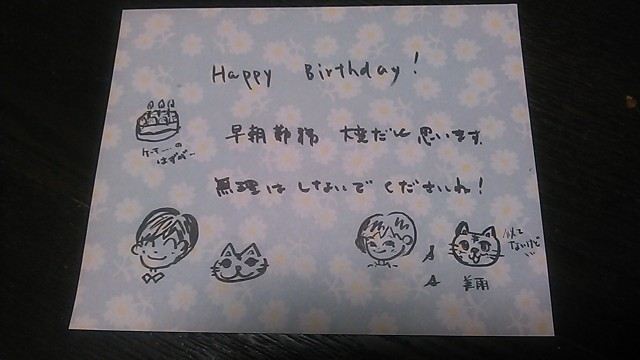 Happy Birthday!
早朝勤務 大変だと思います。
無理はしないでくださいね!
ケーキ…の
はずが…
似て
ないけど
美雨